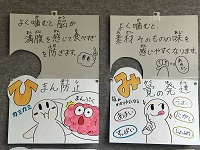 よく噛むと脳が
満腹を感じて食べすぎ
を防ぎます。
よく噛むと、
素材そのものの味を
感じやすくなります。
ひ
まん防止
カミカミ
まんぷく
み
覚の発達
うまい
あまい
しょっぱい
すっぱい